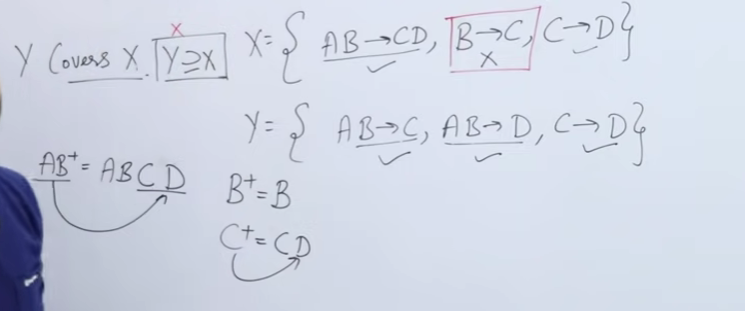 Y Covers X. Y⊇X X= { AB→CD, B→C, C→D}
Y= { AB→C, AB→D, C→D}
AB⁺= ABCD B⁺=B
C⁺= CD